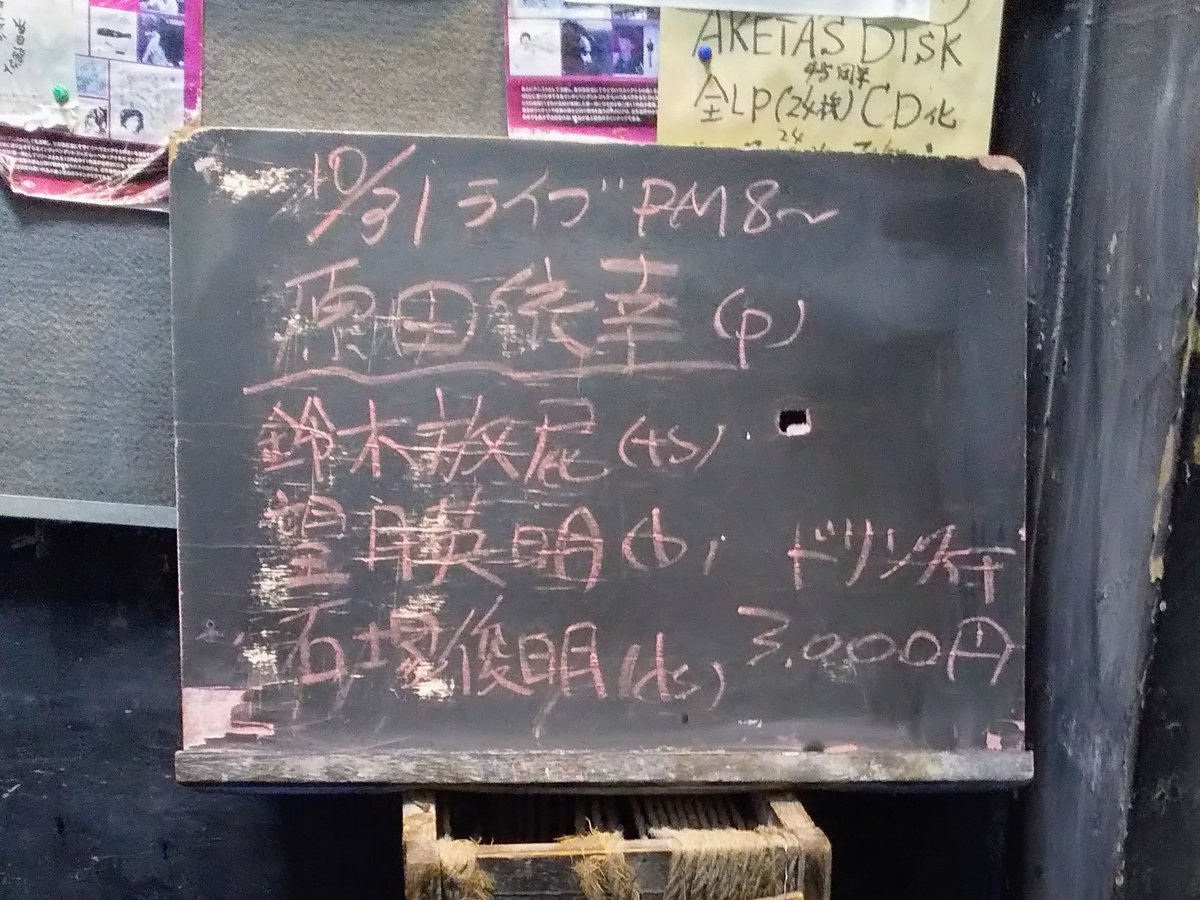 AKETA'S DISK
45周年
全LP(24枚)CD化
24
10/31 ライブ PM8〜
原田依幸(p)
鈴木放屁(ts)
望月英明(b)
石塚俊明(ds)
ドリンク付
3.000円